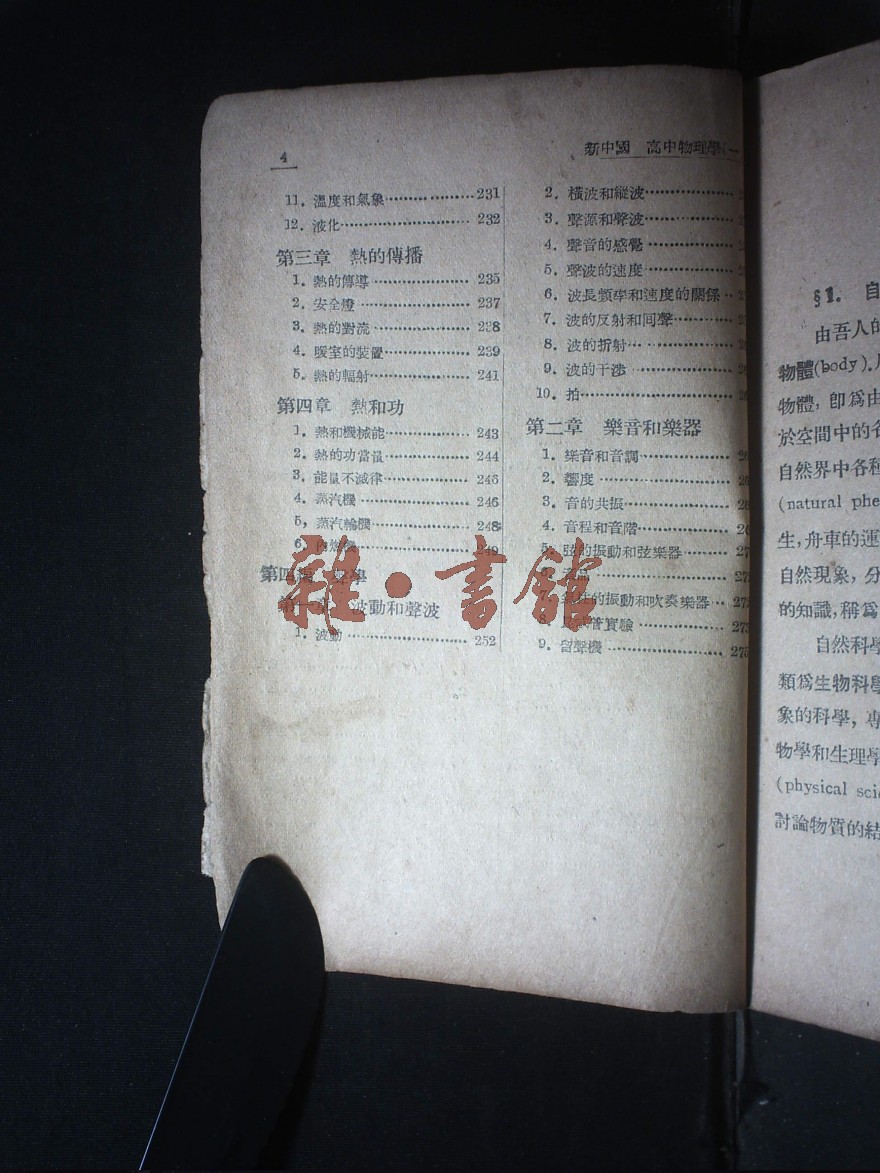 4
新中國 高中物理學(一
11. 溫度和氣象··················231
12. 液化··························232
第三章 熱的傳播
1. 熱的傳導····················235
2. 安全燈························237
3. 熱的對流····················238
4. 暖室的裝置·················239
5. 熱的輻射····················241
第四章 熱和功
1. 熱和機械能·················243
2. 熱的功當量·················244
3. 能量不滅律·················245
4. 蒸汽機························246
5, 蒸汽輪機····················248
6.
第四 聲學
第一章 波動和聲波
1. 波動··························252
2. 橫波和縱波··················
3. 聲源和聲波··················
4. 聲音的感覺··················
5. 聲波的速度··················
6. 波長頻率和速度的關係··
7. 波的反射和回聲···········
8. 波的折射····················
9. 波的干涉····················
10. 拍····························
第二章 樂音和樂器
1. 樂音和音調·················
2. 響度··························
3. 音的共振····················
4. 音程和音階·················
5. 弦的振動和弦樂器········
6. 音品··························
7. 氣柱的振動和吹奏樂器··
8. 實驗·················273
9. 留聲機························275
雜·書館
§1. 自
由吾人的
物體(body).
物體, 卽爲由
於空間中的各
自然界中各種
(natural phe
生, 舟車的運
自然現象, 分
的知識, 稱爲
自然科學
類爲生物科學
象的科學, 專
物學和生理學
(physical scie
討論物質的結